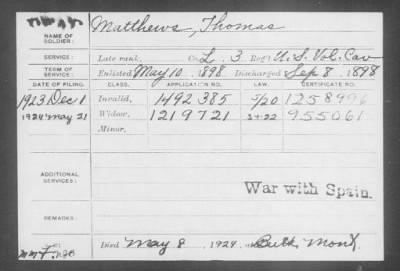 NAME OF SOLDIER: Matthews, Thomas
SERVICE: Late rank, Co. L, 3 Reg't U.S. Vol. Cav
TERM OF SERVICE: Enlisted May 10, 1898 Discharged Sep 8, 1898
DATE OF FILING. CLASS. APPLICATION NO. LAW. CERTIFICATE NO.
1923 Dec 1 Invalid, 1492385 5/20 1258996
1924 May 21 Widow, 1219721 3+22 955061
Minor,
ADDITIONAL SERVICES:
War with Spain.
REMARKS:
Died May 8, 1924, at Butte Mont.